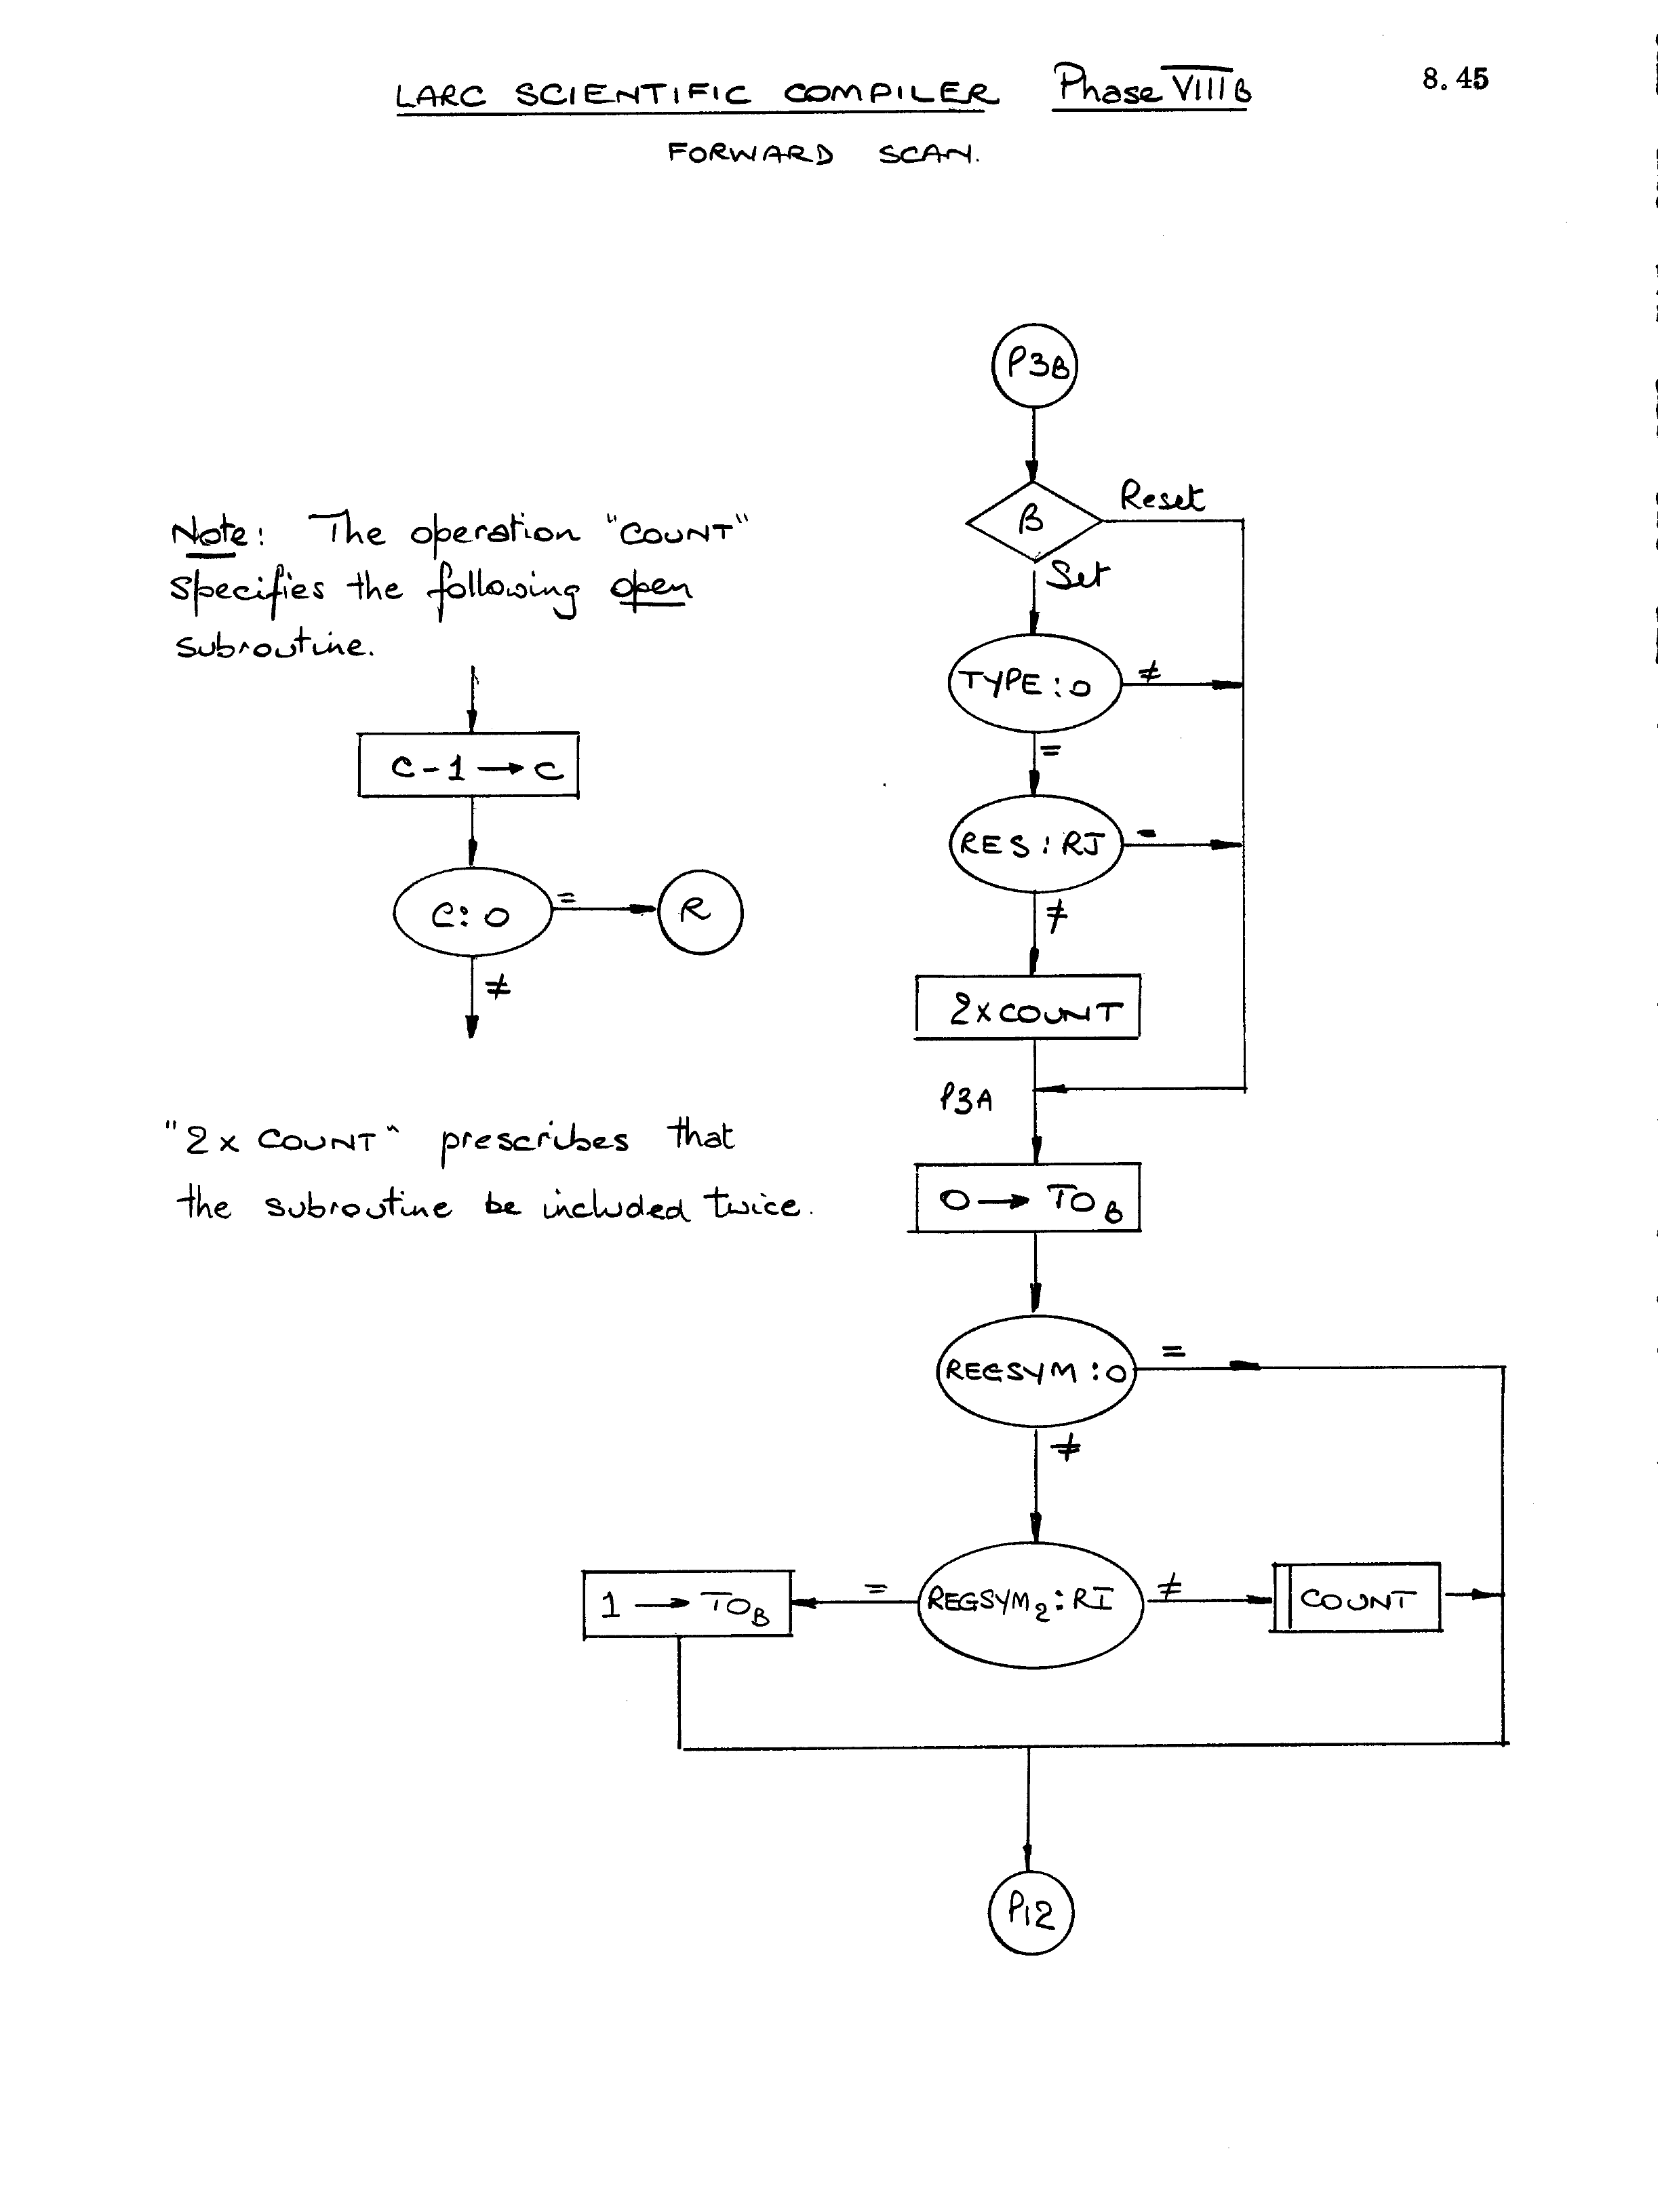 LARC SCIENTIFIC COMPILER Phase VIII B
8.45
FORWARD SCAN.
Note: The operation "COUNT"
specifies the following open
subroutine.
C-1 → C
C: 0
=
R
≠
"2 x COUNT" prescribes that
the subroutine be included twice.
P3B
B
Reset
Set
TYPE: 0
≠
=
RES: RJ
=
≠
2 x COUNT
P3A
0 → TOB
REGSYM: 0
=
≠
1 → TOB
=
REGSYM2: RI
≠
COUNT
P12